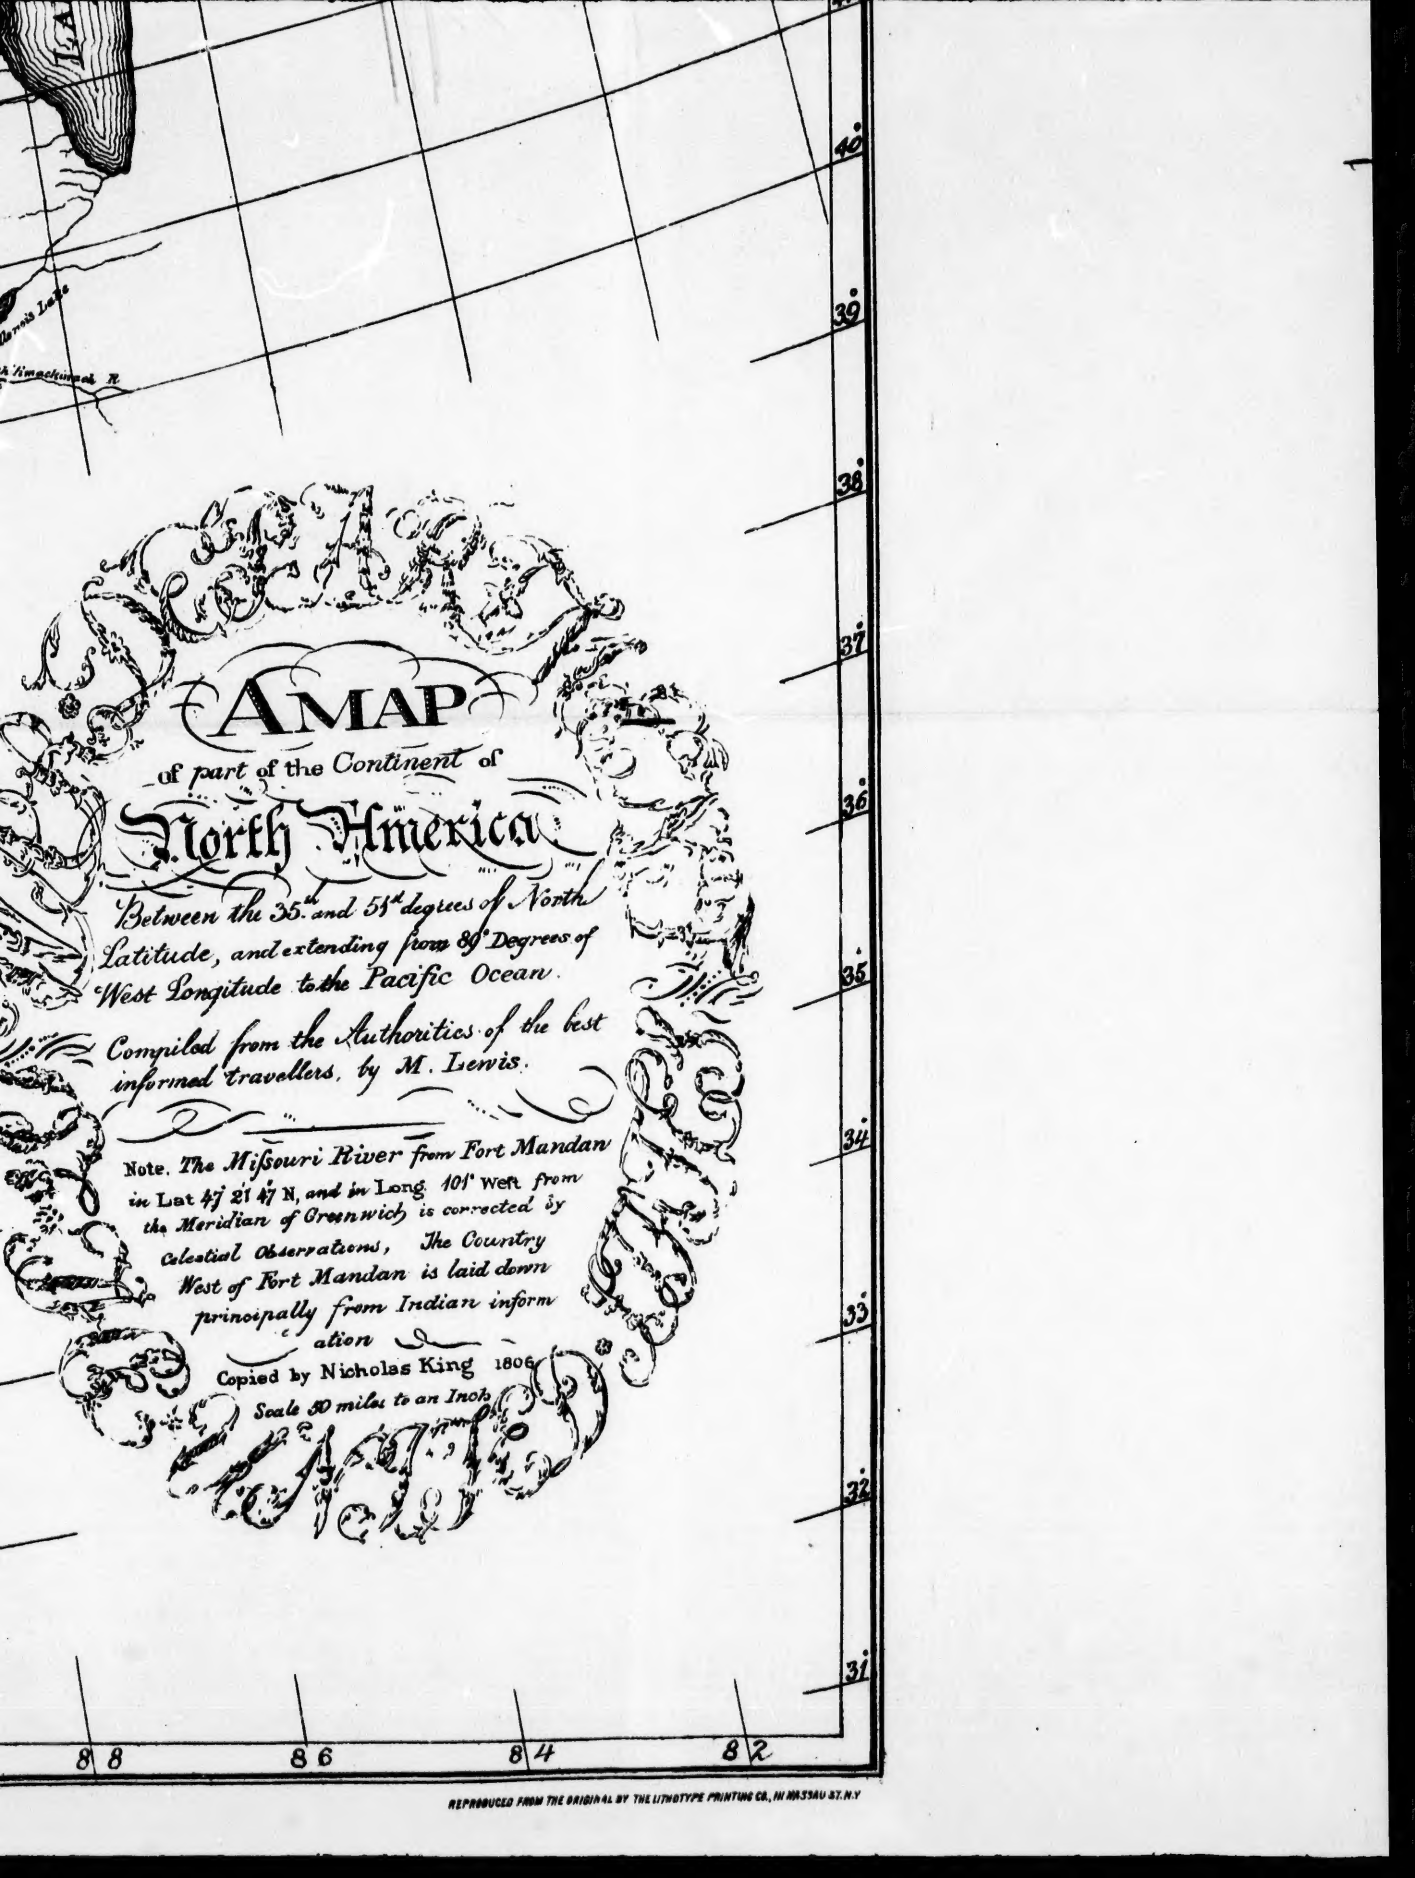 LA
40°
39°
Lake
R
38°
37°
36°
35°
34°
33°
32°
31°
A MAP
of part of the Continent of
North America
Between the 35.th and 51st degrees of North
Latitude, and extending from 89° Degrees of
West Longitude to the Pacific Ocean.
Compiled from the Authorities of the best
informed travellers, by M. Lewis.
Note. The Mißouri River from Fort Mandan
in Lat 47° 21' 47" N, and in Long. 101° West from
the Meridian of Greenwich is corrected by
Celestial Observations, The Country
West of Fort Mandan is laid down
principally from Indian inform
ation
Copied by Nicholas King 1806
Scale 50 miles to an Inch
88 86 84 82
REPRODUCED FROM THE ORIGINAL BY THE LITHOTYPE PRINTING CO., 111 NASSAU ST. N.Y